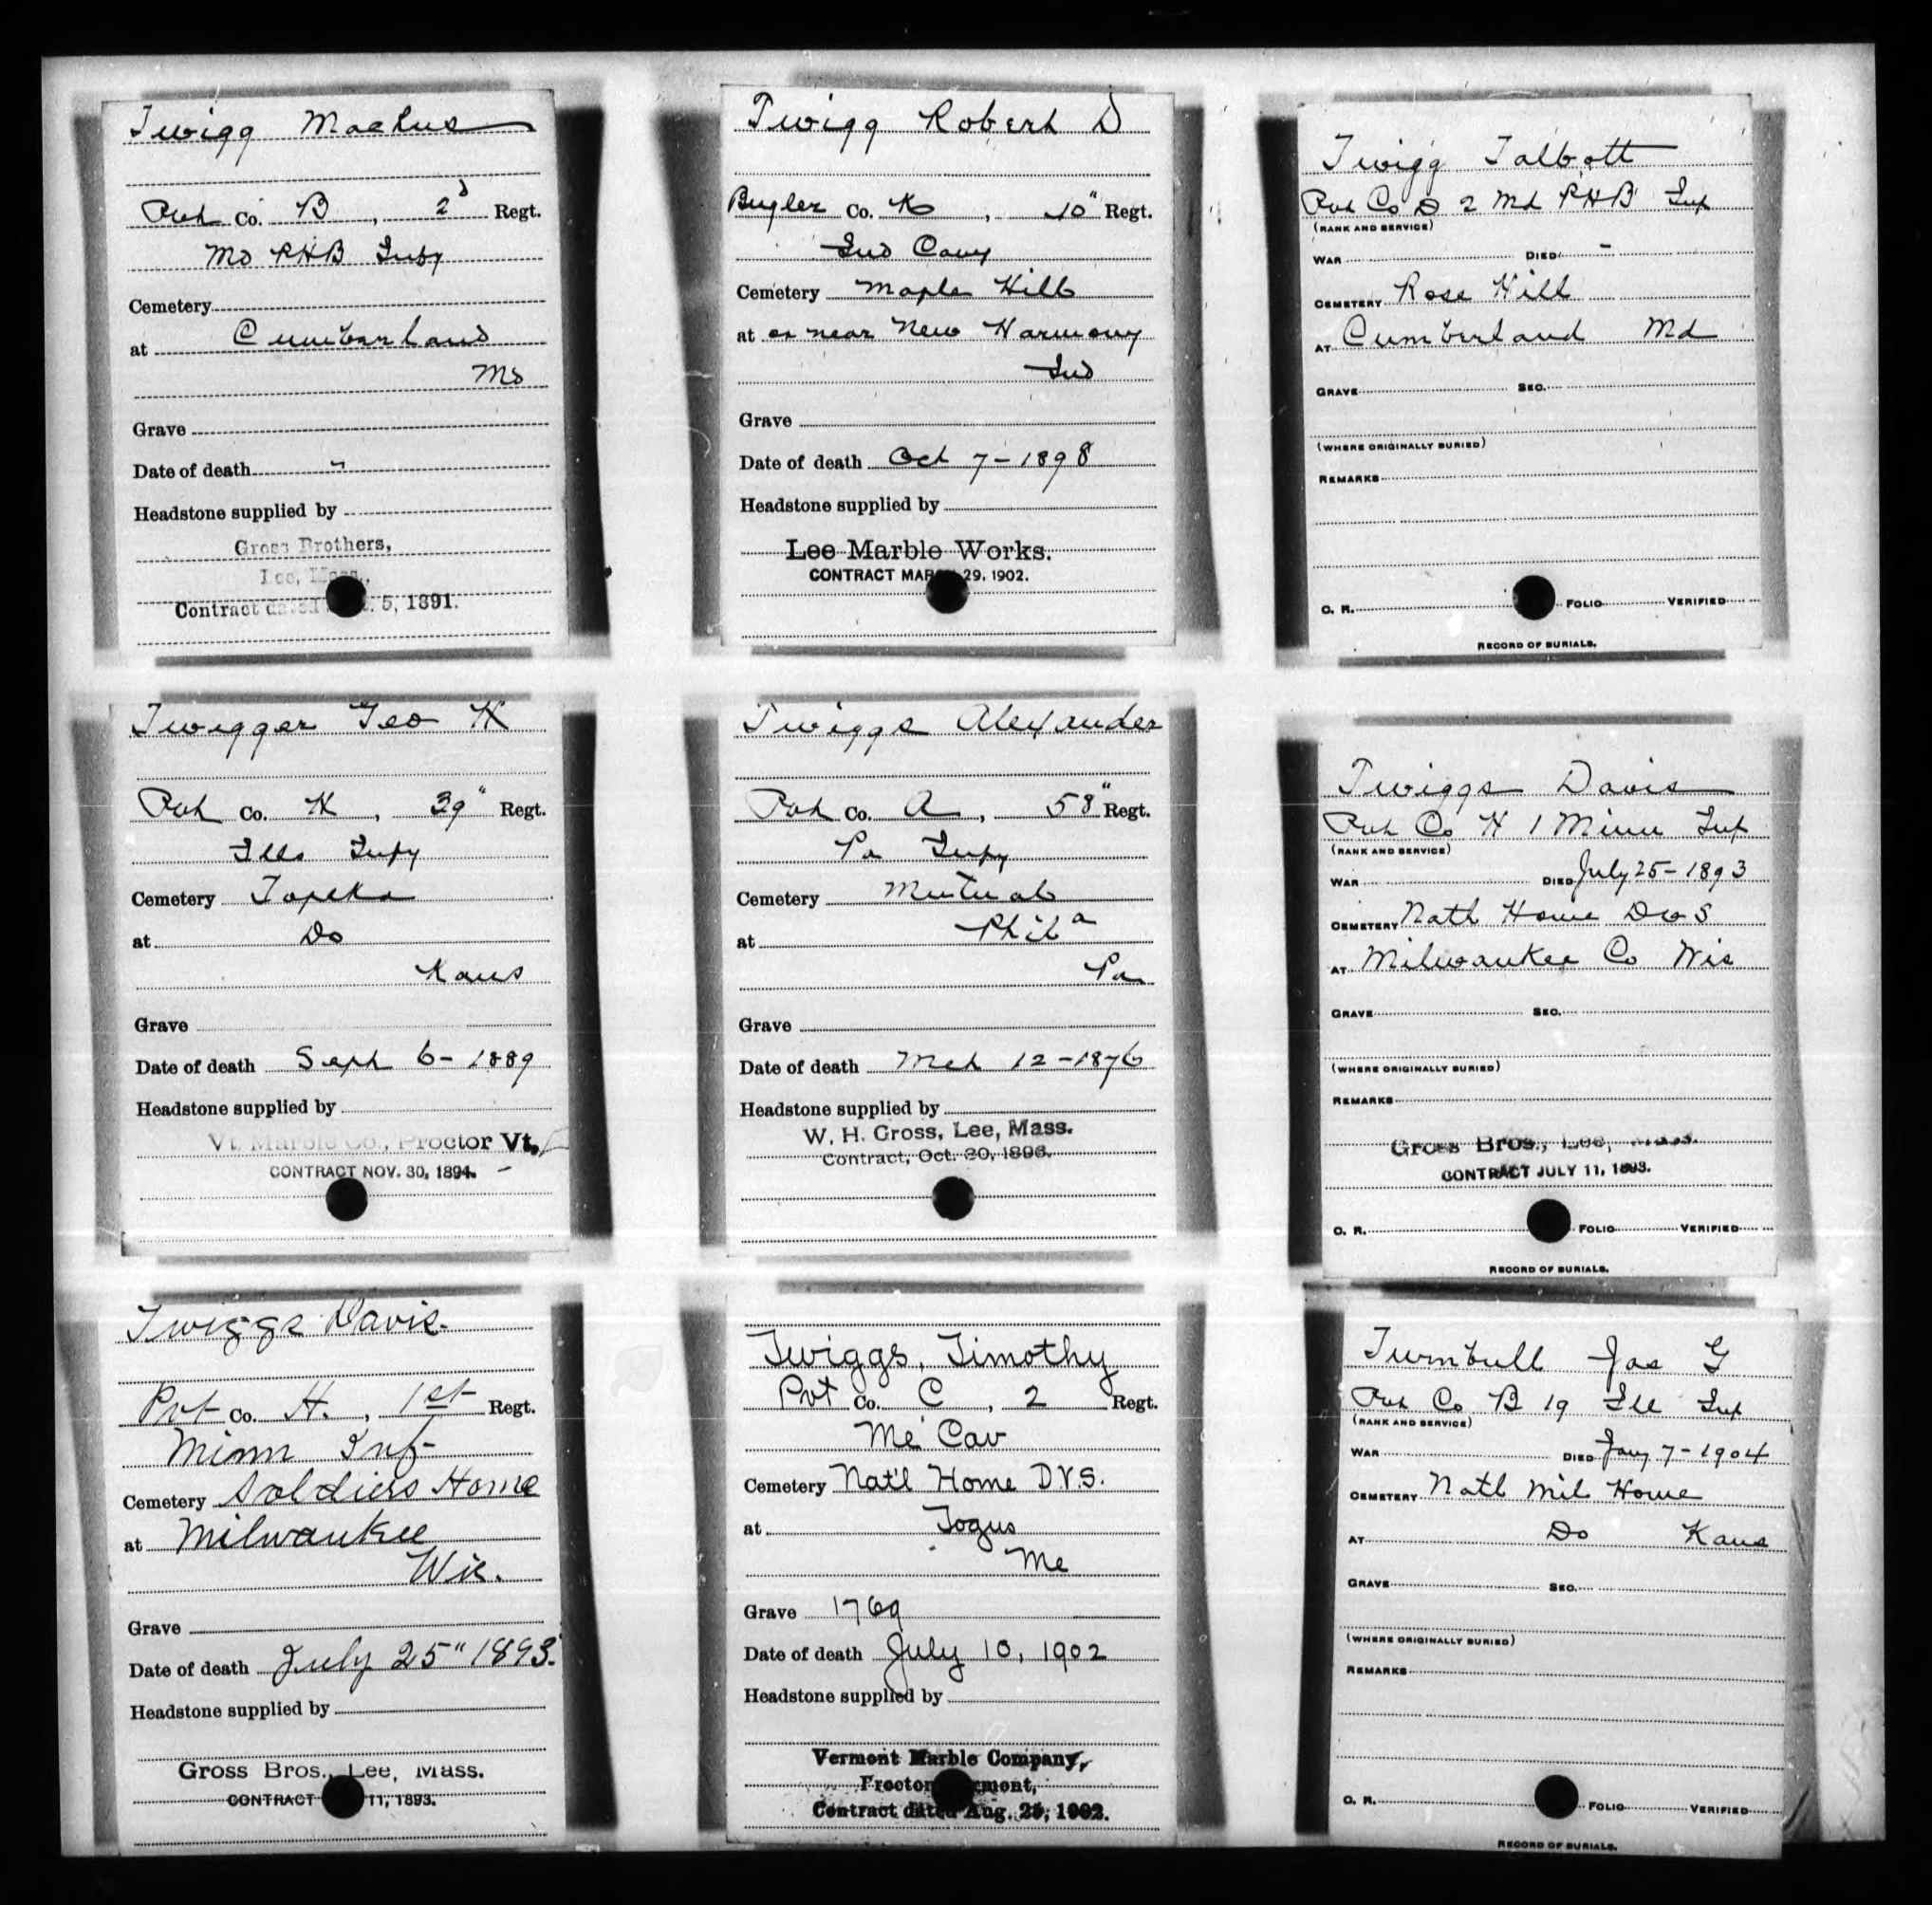 Twigg Mackus
Pvt Co. B, 2d Regt.
Md PHB Infy
Cemetery
at Cumberland
Md
Grave
Date of death "
Headstone supplied by
Gross Brothers,
Lee, Mass.,
Contract dated 5, 1891.
Twigg Robert D
Bugler Co. K, 10" Regt.
Ind Cavy
Cemetery Maple Hill
at or near New Harmony
Ind
Grave
Date of death Oct 7-1898
Headstone supplied by
Lee Marble Works.
CONTRACT MARCH 29, 1902.
Twigg Talbott
Pvt Co D 2 Md PHB Inf
(RANK AND SERVICE)
WAR DIED -
CEMETERY Rose Hill
AT Cumberland Md
GRAVE SEC.
(WHERE ORIGINALLY BURIED)
REMARKS
O. R. FOLIO VERIFIED
RECORD OF BURIALS.
Twigger Geo H
Pvt Co. H, 39" Regt.
Ills Infy
Cemetery Topeka
at Do
Kans
Grave
Date of death Sept 6-1889
Headstone supplied by
Vt. Marble Co., Proctor Vt.
CONTRACT NOV. 30, 1894.
Twiggs Alexander
Pvt Co. A, 58" Regt.
Pa Infy
Cemetery Mutual
at Phila
Pa
Grave
Date of death Mch 12-1876
Headstone supplied by
W. H. Gross, Lee, Mass.
Contract, Oct. 20, 1896.
Twiggs Davis
Pvt Co H 1 Minn Inf
(RANK AND SERVICE)
WAR DIED July 25-1893
CEMETERY Natl Home DVS
AT Milwaukee Co Wis
GRAVE SEC.
(WHERE ORIGINALLY BURIED)
REMARKS
Gross Bros., Lee, Mass.
CONTRACT JULY 11, 1893.
O. R. FOLIO VERIFIED
RECORD OF BURIALS.
Twiggs Davis.
Pvt Co. H., 1st Regt.
Minn Inf-
Cemetery Soldiers Home
at Milwaukee
Wis.
Grave
Date of death July 25" 1893.
Headstone supplied by
Gross Bros., Lee, Mass.
CONTRACT 11, 1893.
Twiggs, Timothy
Pvt Co. C, 2 Regt.
Me Cav
Cemetery Nat'l Home D.V.S.
at Togus
Me
Grave 1769
Date of death July 10, 1902
Headstone supplied by
Vermont Marble Company,
Proctor, Vermont,
Contract dated Aug. 25, 1902.
Turnbull Jas G
Pvt Co B 19 Ill Inf
(RANK AND SERVICE)
WAR DIED Jany 7-1904
CEMETERY Natl Mil Home
AT Do Kans
GRAVE SEC.
(WHERE ORIGINALLY BURIED)
REMARKS
O. R. FOLIO VERIFIED
RECORD OF BURIALS.